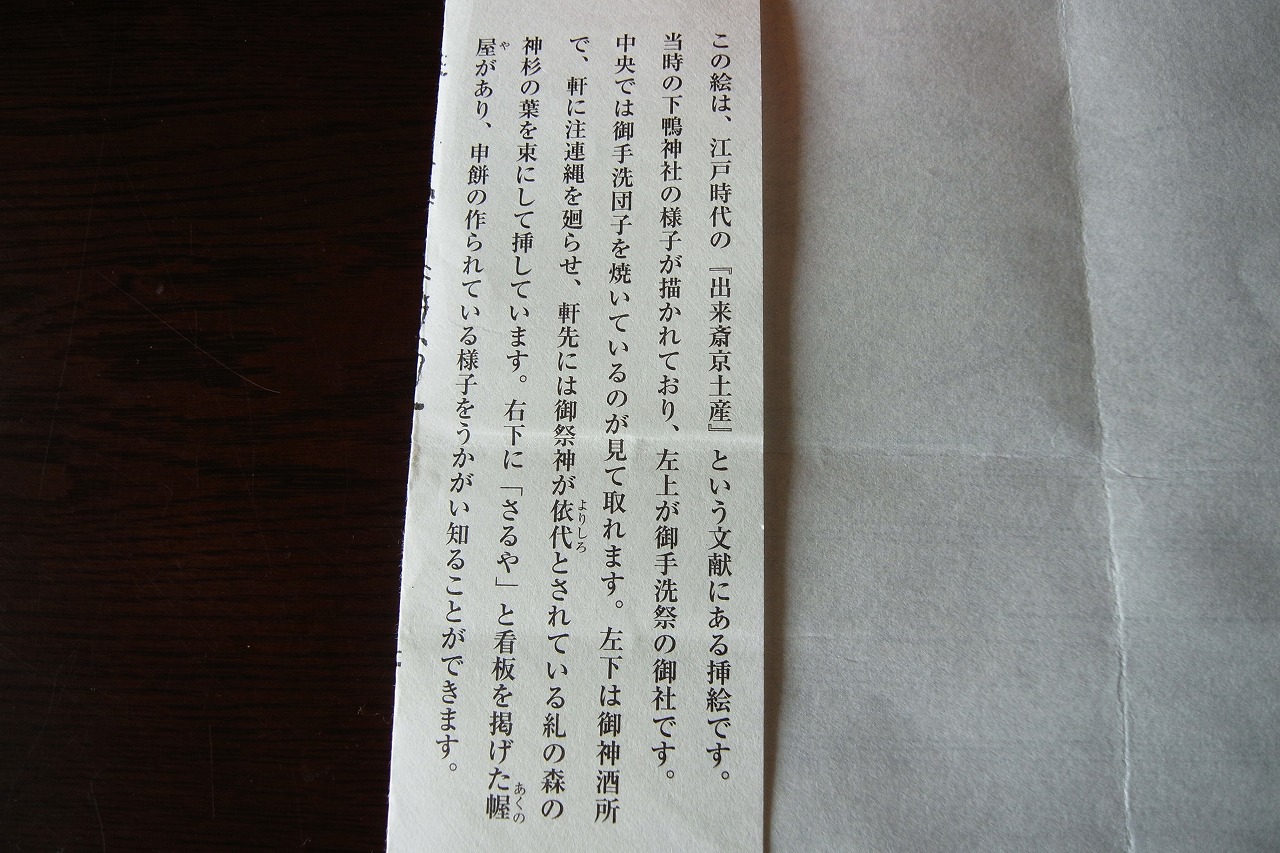 この絵は、江戸時代の『出来斎京土産』という文献にある挿絵です。
当時の下鴨神社の様子が描かれており、左上が御手洗祭の御社です。
中央では御手洗団子を焼いているのが見て取れます。左下は御神酒所
で、軒に注連縄を廻らせ、軒先には御祭神が依代とされている糺の森の
よりしろ
神杉の葉を束にして挿しています。右下に「さるや」と看板を掲げた幄
あくの
屋があり、申餅の作られている様子をうかがい知ることができます。
や